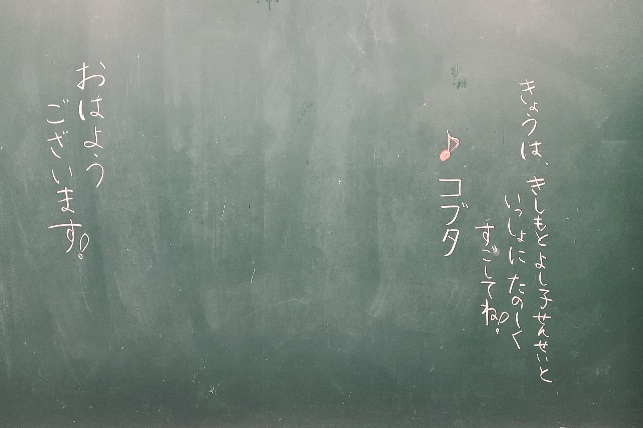 きょうは、きしもとよし子せんせいと
いっしょにたのしく
すごしてね!
♪コブタ
おはよう
ございます!